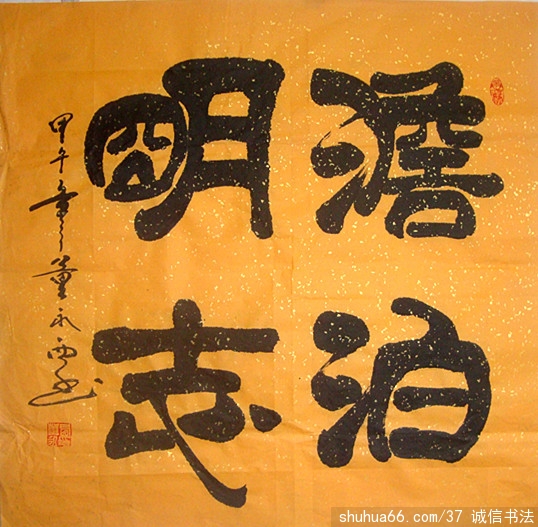 澹泊
明志
甲午年董永西书
shuhua66.com/37 诚信书法